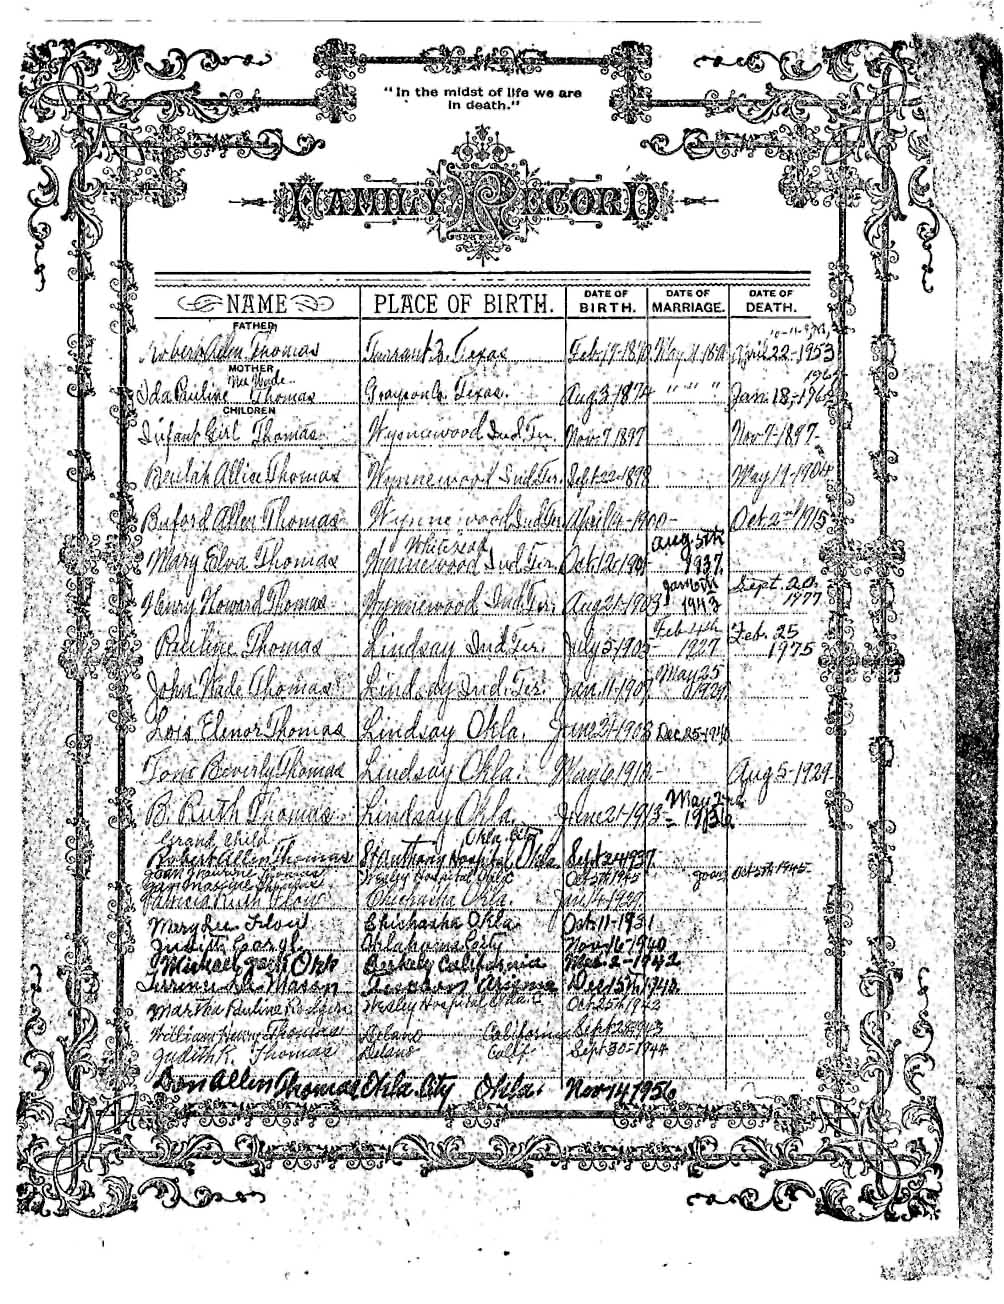 "In the midst of life we are
in death."
FAMILY RECORD
NAME PLACE OF BIRTH. DATE OF BIRTH. DATE OF MARRIAGE. DATE OF DEATH.
FATHER
Robert Allen Thomas Tarrant Co. Texas Feb. 19-1870 May 11-189 April 22-1953
MOTHER 196
Nee Wade
Ida Pauline Thomas Grayson Co. Texas. Aug 3-1874 " " " Jan. 18,-196
CHILDREN
Infant Girl Thomas Wynnewood Ind. Ter. Nov-7 1897 Nov-7-1897-
Beulah Allie Thomas Wynnewood Ind. Ter. Sept 22-1898 May 19-1904
Buford Allen Thomas Wynnewood Ind. Ter April 14-1900- Oct 2nd 1915
Whitebead Aug 5th
Mary Elva Thomas Wynnewood Ind. Ter. Oct. 12-190 1937
Jan Sept. 20,
Henry Howard Thomas Wynnewood Ind. Ter. Aug 21-1903 1943 1977
Feb 4th Feb. 25
Pauline Thomas Lindsay Ind. Ter. July 5-1905- 1927 1975
May 25
John Wade Thomas Lindsay Ind. Ter. Jan. 11-1907 1929
Lois Elenor Thomas Lindsay Okla. June 21-1908 Dec 25-19
Tom Beverly Thomas Lindsay Okla. May 6 1910- Aug 5-1929-
May 2nd
B. Ruth Thomas Lindsay Okla. June 21-1913- 193
Grand Child Okla. City
Robert Allen Thomas St Anthony Hospital Okla Sept 24 1937
Joan Thomas Wesley Hospital Okla Oct 5th 1945 Joan Oct 5th 1945
Patricia Ruth Chickasha Okla. Jan 4-1929
Mary Lee Chickasha Okla Oct. 11-1931
Judith Oklahoma City Nov 16-1940
Michael Orr Berkely California Mar-2-1942
Terrence Lee Mason Tucson Arizona Dec 15th 194
Martha Pauline Rodgers Wesley Hospital Okla. C Oct 25th 1942
William Henry Thomas Delano California Sept 21-1943
Judith K. Thomas Delano Calif. Sept 30-1944
Don Allen Thomas Okla. City Okla. Nov 14 1956